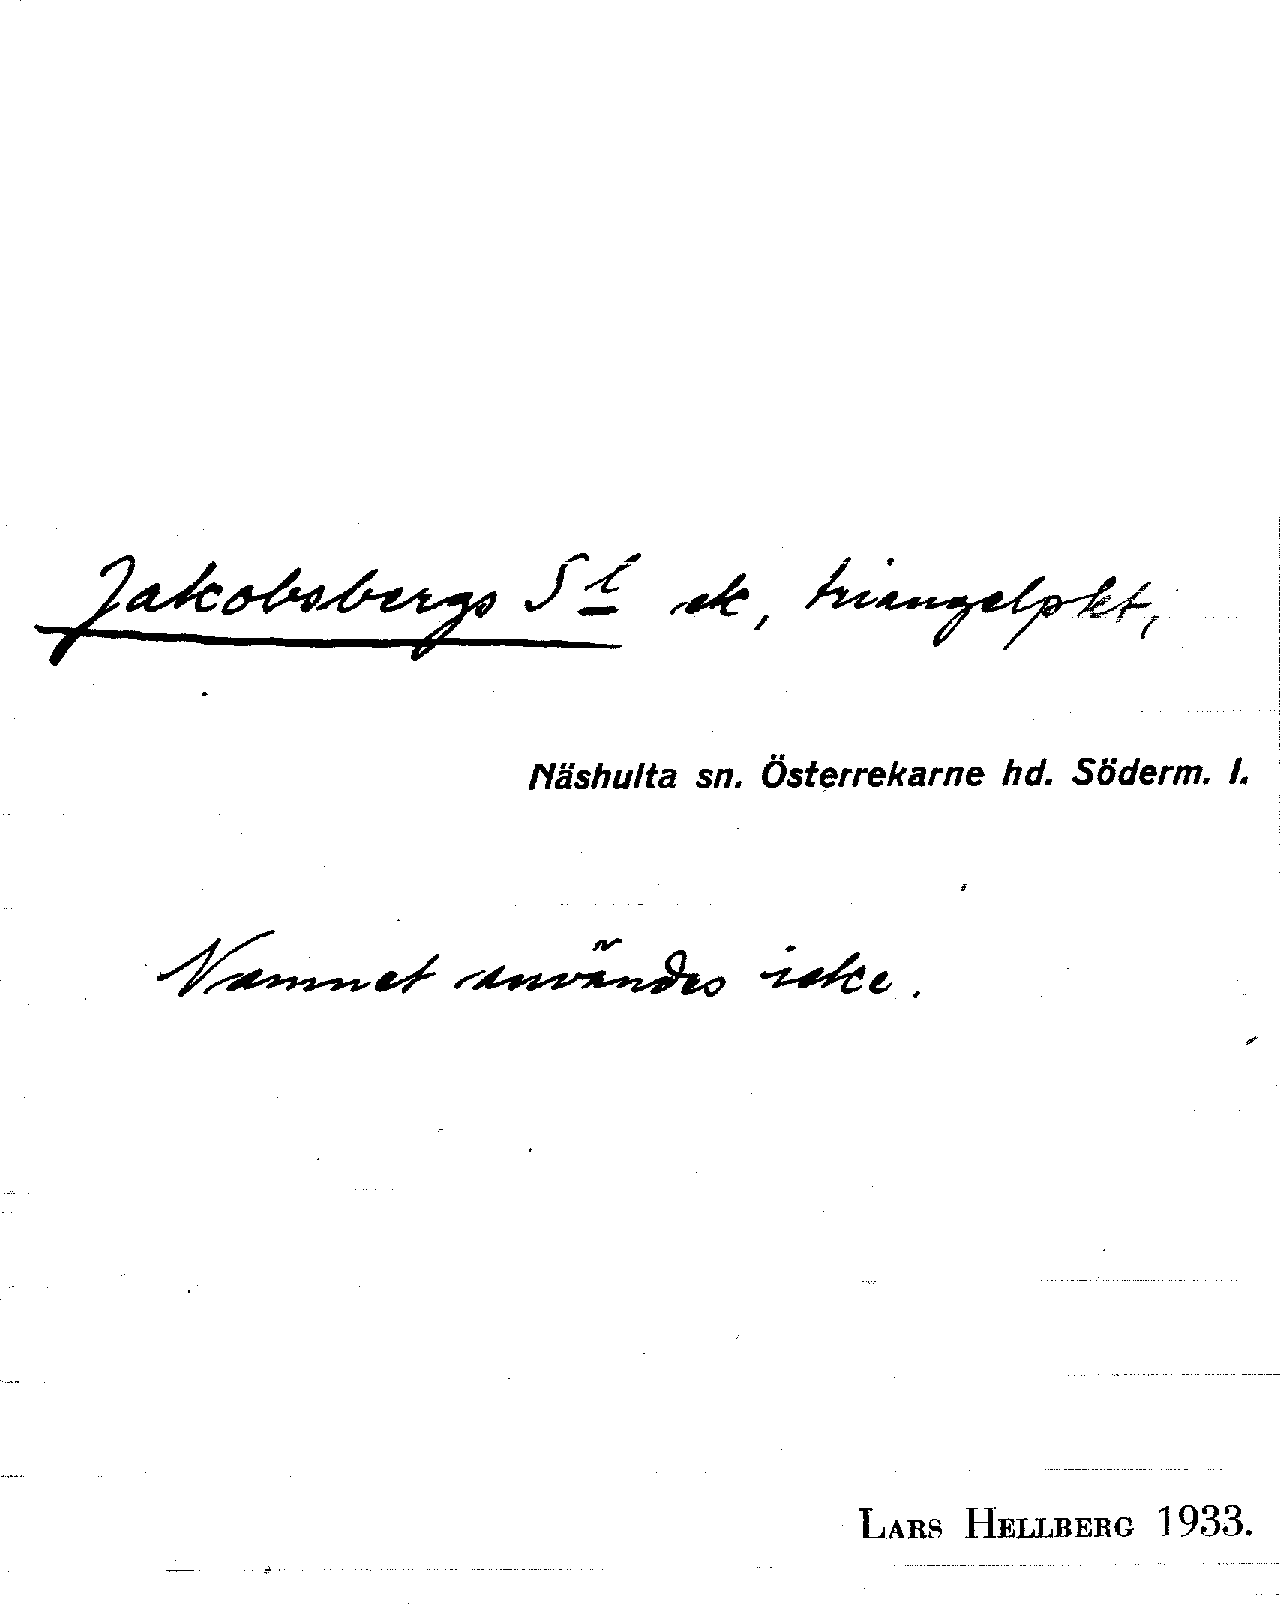 Jakobsbergs St ek, triangelpkt,
Näshulta sn. Österrekarne hd. Söderm. l.
Namnet användes icke.
LARS HELLBERG 1933.